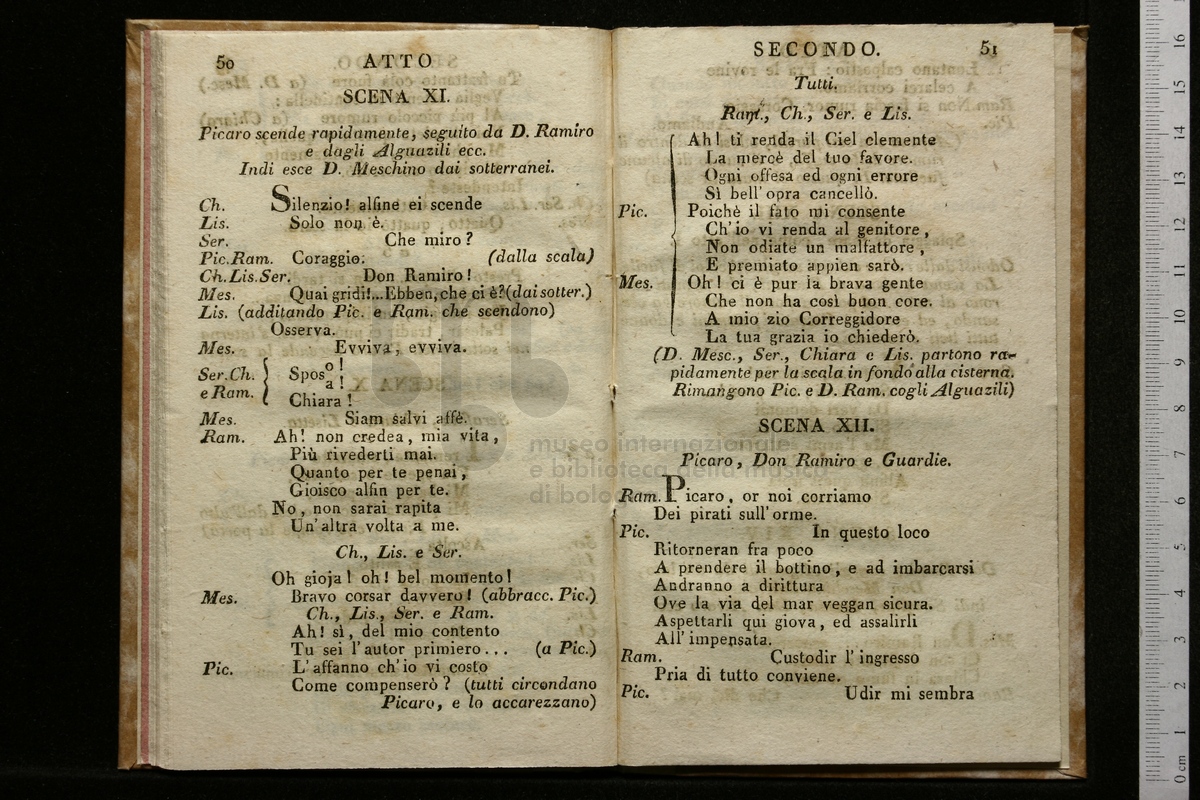 50 ATTO
SCENA XI.
Picaro scende rapidamente, seguito da D. Ramiro
e dagli Alguazili ecc.
Indi esce D. Meschino dai sotterranei.
Ch. Silenzio! alfine ei scende
Lis. Solo non è.
Ser. Che miro?
Pic.Ram. Coraggio: (dalla scala)
Ch.Lis.Ser. Don Ramiro!
Mes. Quai gridi!...Ebben, che ci è? (dai sotter.)
Lis. (additando Pic. e Ram. che scendono)
Osserva.
Mes. Evviva, evviva.
Ser.Ch. e Ram. { Sposo!
a!
Chiara!
Mes. Siam salvi affè.
Ram. Ah! non credea, mia vita,
Più rivederti mai.
Quanto per te penai,
Gioisco alfin per te.
No, non sarai rapita
Un'altra volta a me.
Ch., Lis. e Ser.
Oh gioja! oh! bel momento!
Mes. Bravo corsar davvero! (abbracc. Pic.)
Ch., Lis., Ser. e Ram.
Ah! sì, del mio contento
Tu sei l'autor primiero... (a Pic.)
Pic. L'affanno ch'io vi costo
Come compenserò? (tutti circondano
Picaro, e lo accarezzano)
SECONDO. 51
Tutti.
Ram., Ch., Ser. e Lis.
Ah! ti renda il Ciel clemente
La mercè del tuo favore.
Ogni offesa ed ogni errore
Sì bell'opra cancellò.
Pic. Poichè il fato mi consente
Ch'io vi renda al genitore,
Non odiate un malfattore,
E premiato appien sarò.
Mes. Oh! ci è pur la brava gente
Che non ha così buon core.
A mio zio Correggidore
La tua grazia io chiederò.
(D. Mesc., Ser., Chiara e Lis. partono ra-
pidamente per la scala in fondo alla cisterna.
Rimangono Pic. e D. Ram. cogli Alguazili)
SCENA XII.
Picaro, Don Ramiro e Guardie.
Ram. Picaro, or noi corriamo
Dei pirati sull'orme.
Pic. In questo loco
Ritorneran fra poco
A prendere il bottino, e ad imbarcarsi
Andranno a dirittura
Ove la via del mar veggan sicura.
Aspettarli qui giova, ed assalirli
All'impensata.
Ram. Custodir l'ingresso
Pria di tutto conviene.
Pic. Udir mi sembra
museo internazionale
e biblioteca della musica
di bologna
0 cm 1 2 3 4 5 6 7 8 9 10 11 12 13 14 15 16